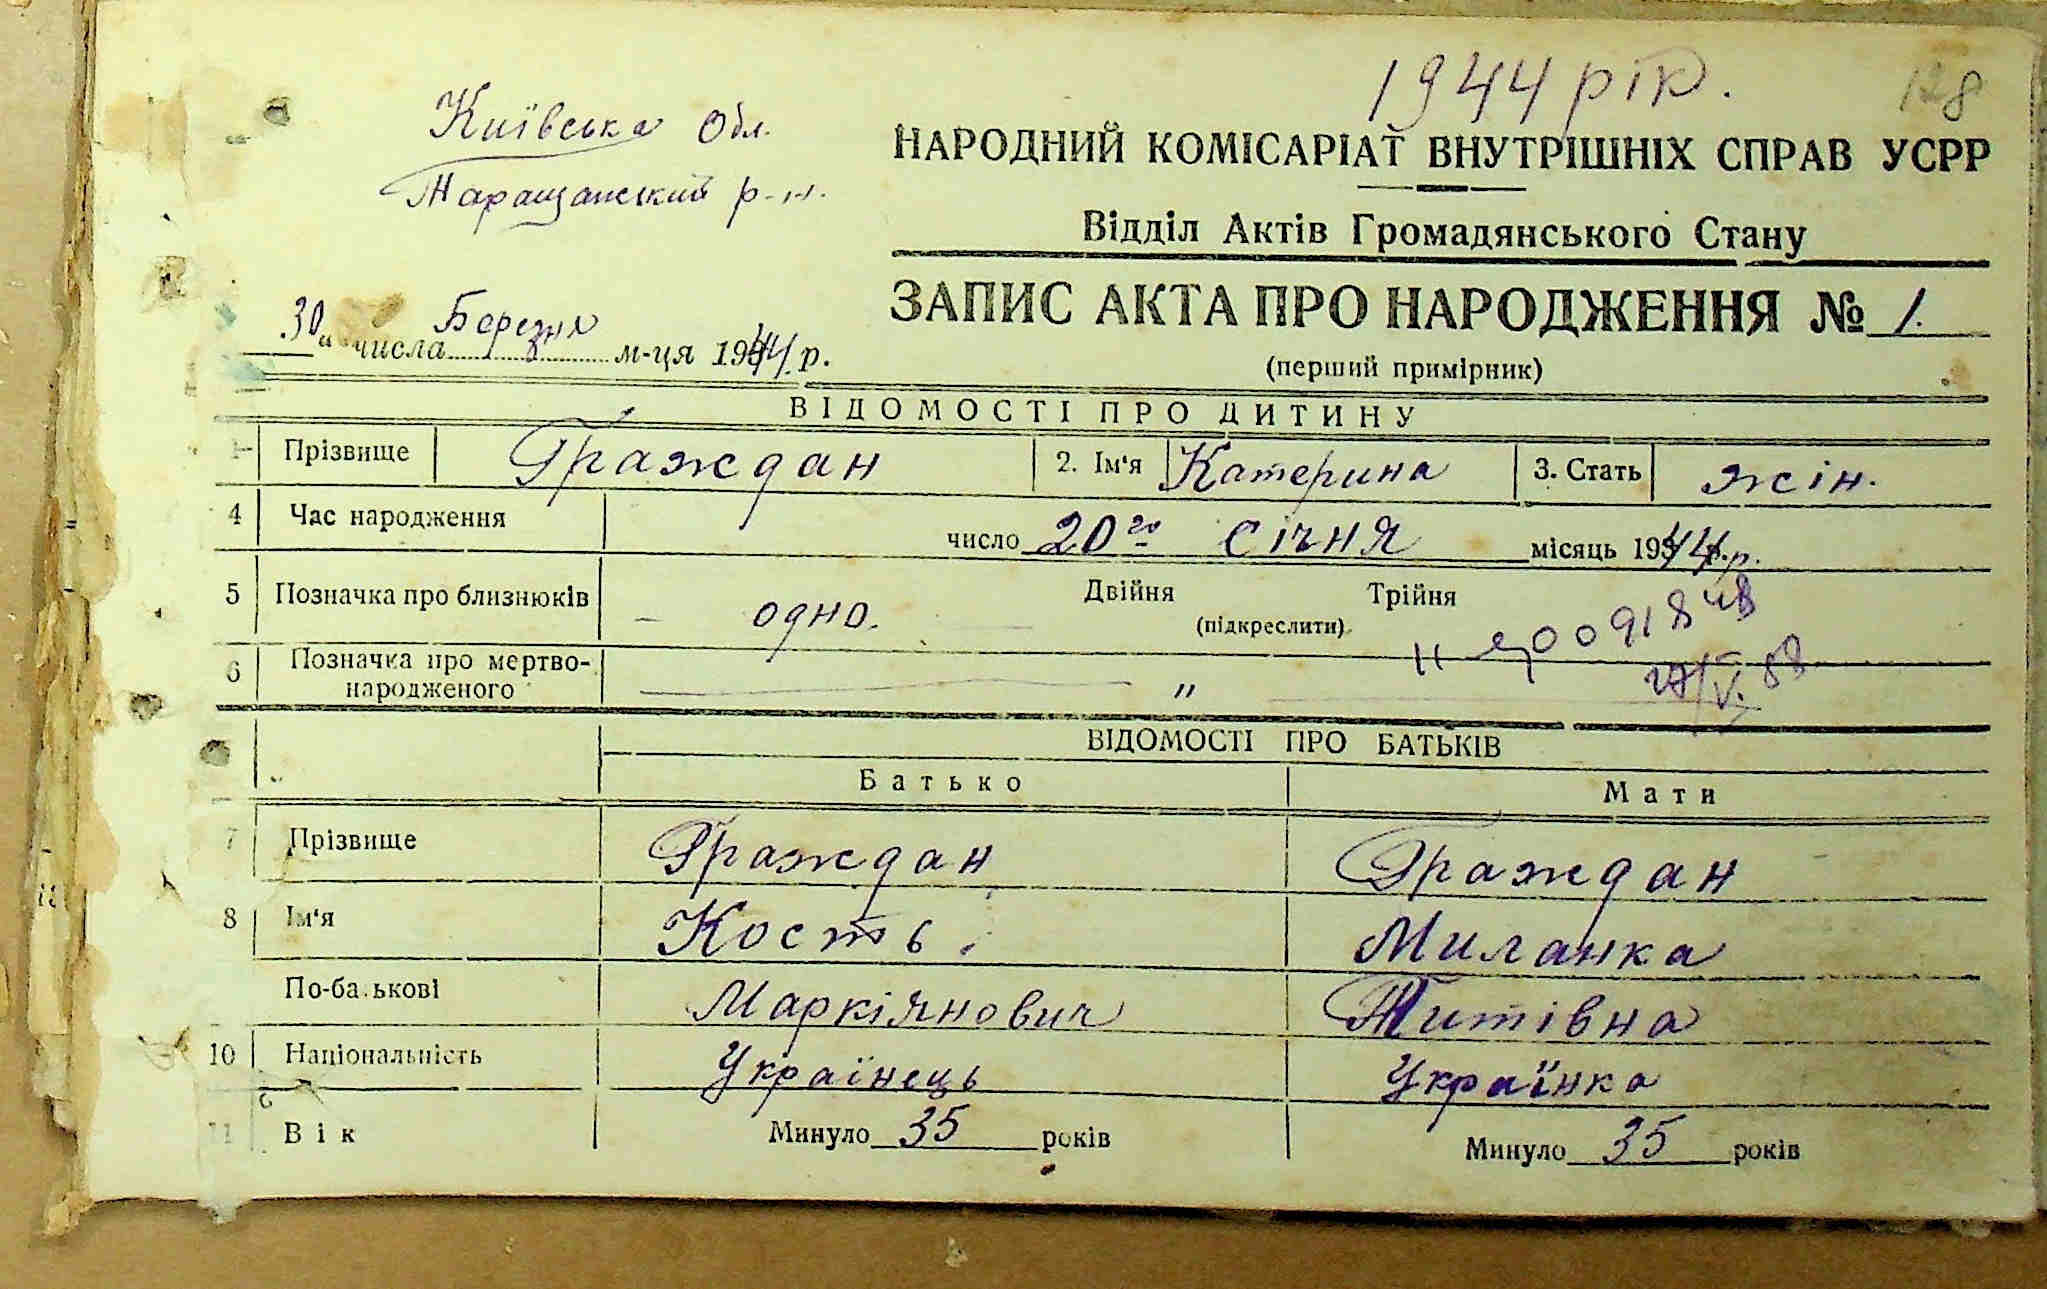 1944 рік. 128
Київська Обл.
Таращанский р-н.
НАРОДНИЙ КОМІСАРІАТ ВНУТРІШНІХ СПРАВ УСРР
Відділ Актів Громадянського Стану
ЗАПИС АКТА ПРО НАРОДЖЕННЯ № 1.
(перший примірник)
30 „ числа Березня м-ця 1944 р.
ВІДОМОСТІ ПРО ДИТИНУ
1 Прізвище Граждан 2. Ім'я Катерина 3. Стать жін.
4 Час народження число 20го січня місяць 1944 р.
5 Позначка про близнюків — одно. Двійня Трійня
(підкреслити)
6 Позначка про мертво-
народженого — „ —
ВІДОМОСТІ ПРО БАТЬКІВ
Батько Мати
7 Прізвище Граждан Граждан
8 Ім'я Кость Миланка
По-ба.ькові Маркіянович Титівна
10 Національність Українець Українка
11 Вік Минуло 35 років Минуло 35 років